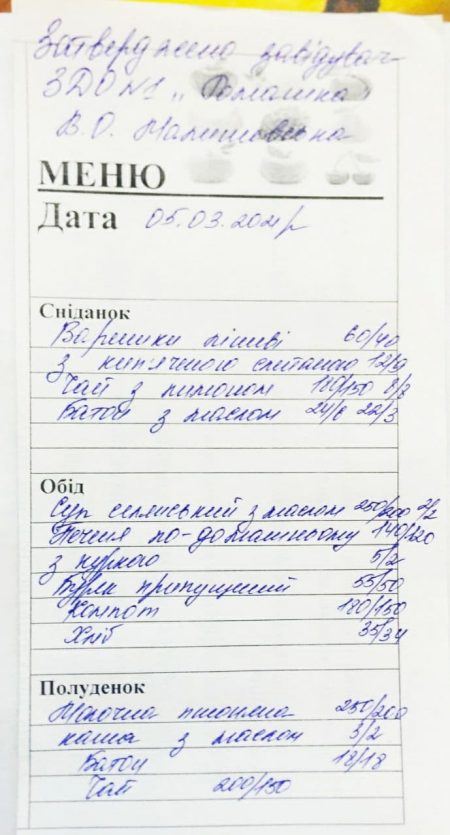 Затверджено завідувач
ЗДО №1 „Ромашка"
В.О.
МЕНЮ
Дата 05.03.2021р
Сніданок
Вареники ліниві 60/40
з кип'яченого сметаною 12/9
Чай з лимоном 180/150 8/8
Батон з маслом 24/6 22/3
Обід
Суп селянський з маслом 250/200 2/2
Печеня по-домашньому 140/120
з куркою 5/2
Буряк припущений 55/50
Компот 180/150
Хліб 35/34
Полуденок
Молочна пшоняна 250/200
каша з маслом 3/2
Батон 18/18
Чай 200/150